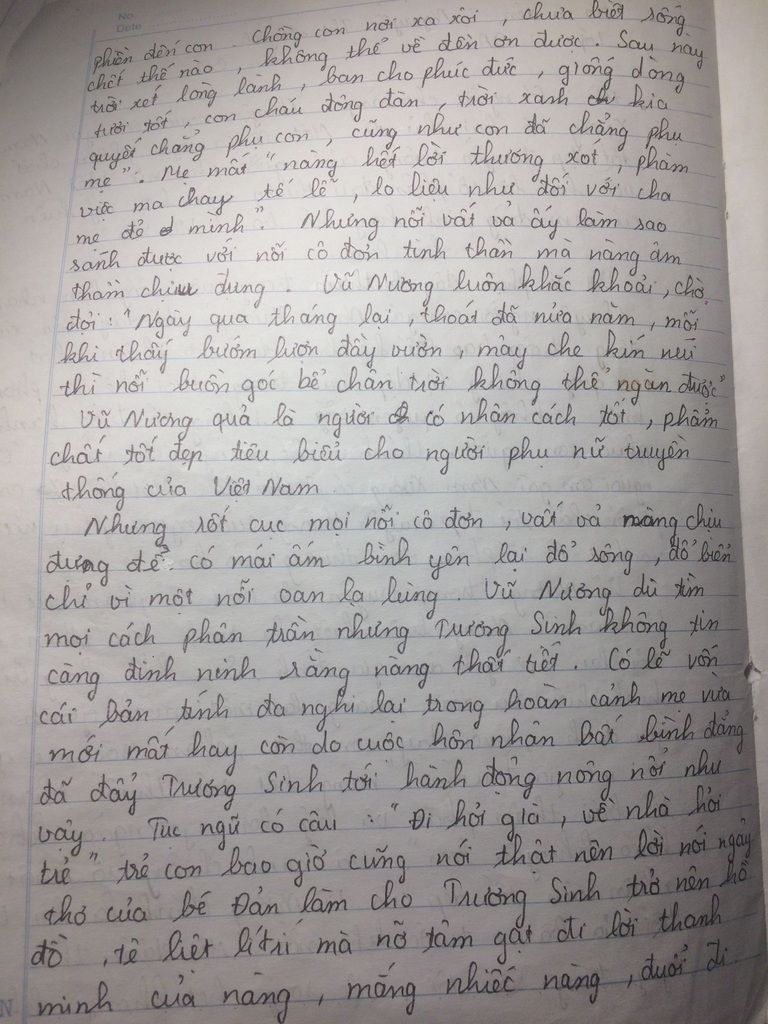 No
Date
phiền đến con. Chồng con nơi xa xôi, chưa biết sống
chết thế nào, không thể về đền ơn được. Sau này
trời xét lòng lành, ban cho phúc đức, giống dòng
tươi tốt, con cháu đông đàn, trời xanh kia
quyết chẳng phụ con, cũng như con đã chẳng phụ
mẹ". Mẹ mất "nàng hết lời thương xót, phàm
việc ma chay tế lễ, lo liệu như đối với cha
mẹ đẻ mình". Nhưng nỗi vất vả ấy làm sao
sánh được với nỗi cô đơn tinh thần mà nàng âm
thầm chịu đựng. Vũ Nương luôn khắc khoải, chờ
đợi: "Ngày qua tháng lại, thoát đã nửa năm, mỗi
khi thấy bướm lượn đầy vườn, mây che kín núi
thì nỗi buồn góc bể chân trời không thể ngăn được"
Vũ Nương quả là người có nhân cách tốt, phẩm
chất tốt đẹp tiêu biểu cho người phụ nữ truyền
thống của Việt Nam.
Nhưng rốt cục mọi nỗi cô đơn, vất vả nàng chịu
đựng để có mái ấm bình yên lại đổ sông, đổ biển
chỉ vì một nỗi oan lạ lùng. Vũ Nương dù tìm
mọi cách phân trần nhưng Trương Sinh không tin
càng đinh ninh rằng nàng thất tiết. Có lẽ vốn
cái bản tính đa nghi lại trong hoàn cảnh mẹ vừa
mới mất hay còn do cuộc hôn nhân bất bình đẳng
đã đẩy Trương Sinh tới hành động nông nổi như
vậy. Tục ngữ có câu: "Đi hỏi già, về nhà hỏi
trẻ" trẻ con bao giờ cũng nói thật nên lời nói ngây
thơ của bé Đản làm cho Trương Sinh trở nên hồ
đồ, tê liệt lí trí mà nỡ tâm gạt đi lời thanh
minh của nàng, mắng nhiếc nàng, đuổi đi